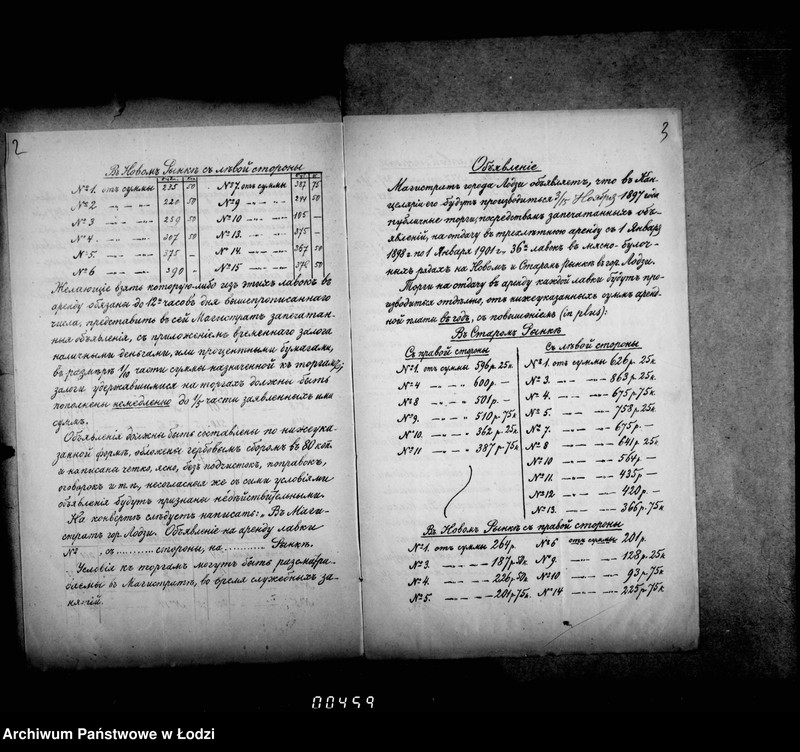 2
Въ Новомъ Рынкѣ съ лѣвой стороны
№ 1. отъ суммы 235 50 № 7. отъ суммы 387 75
№ 2 — — 220 50 № 9 — — 244 50
№ 3 — — 239 50 № 10 — — 105 —
№ 4. — — 307 50 № 13. — — 375 —
№ 5. — — 375 — № 14. — — 367 50
№ 6 — — 390 — № 15 — — 50
Желающіе взять которую-либо изъ этихъ лавокъ въ
аренду обязаны до 12ти часовъ дня вышепрописаннаго
числа, представить въ сей Магистратъ запечатан-
ныя объявленія, съ приложеніемъ временнаго залога
наличными деньгами, или процентными бумагами,
въ размѣрѣ 1/10 части суммы назначенной къ торгамъ;
залоги удержавшихся на торгахъ должны быть
пополнены немедленно до 1/5 части заявленныхъ ими
суммъ.
Объявленія должны быть составлены по нижеука-
занной формѣ, обложены гербовымъ сборомъ въ 80 коп.
и написана четко, ясно, безъ подчистокъ, поправокъ,
оговорокъ и т.п., несогласныя же съ сими условіями
объявленія будутъ признаны недѣйствительными.
На конвертѣ слѣдуетъ написать: „Въ Маги-
стратъ гор. Лодзи. Объявленіе на аренду лавки
№ .. съ .......... стороны, на .......... Рынкѣ.
Условія къ торгамъ могутъ быть разсматри-
ваемы въ Магистратѣ, во время служебныхъ за-
нятій.
3
Объявленіе
Магистратъ города Лодзи объявляетъ, что въ Кан-
целяріи его будутъ производиться 3/15 Ноября 1897 года
публичные торги, посредствомъ запечатанныхъ объ-
явленій, на отдачу въ трехлѣтнюю аренду съ 1 Января
1898 г. по 1 Января 1901 г., 36ти лавокъ въ мясно-булоч-
ныхъ рядахъ на Новомъ и Старомъ Рынкѣ въ гор. Лодзи.
Торги на отдачу въ аренду каждой лавки будутъ про-
изводиться отдѣльно, отъ нижеуказанныхъ суммъ аренд-
ной платы въ годъ, съ повышеніемъ (in plus):
Въ Старомъ Рынкѣ
Съ правой стороны
№ 1. отъ суммы 396 р. 25 к.
№ 4 — — 600 р. —
№ 8 — — 501 р. —
№ 9. — — 510 р. 75 к.
№ 10. — — 362 р. 25 к.
№ 11 — — 387 р. 75 к.
Съ лѣвой стороны
№ 1. отъ суммы 626 р. 25 к.
№ 3. — — 863 р. 25 к.
№ 4. — — 675 р. 75 к.
№ 5. — — 758 р. 25 к.
№ 7. — — 675 р. —
№ 8 — — 641 р. 25 к.
№ 10 — — 564 р. —
№ 11. — — 435 р. —
№ 12 — — 420 р. —
№ 13. — — 366 р. 75 к.
Въ Новомъ Рынкѣ съ правой стороны
№ 1. отъ суммы 264 р. № 6 отъ суммы 201 р.
№ 3. — — 187 р. 50 к. № 9. — — 128 р. 25 к.
№ 4. — — 226 р. 50 к. № 10 — — 93 р. 75 к.
№ 5. — — 201 р. 75 к. № 14 — — 225 р. 75 к.
00459
Archiwum Państwowe w Łodzi